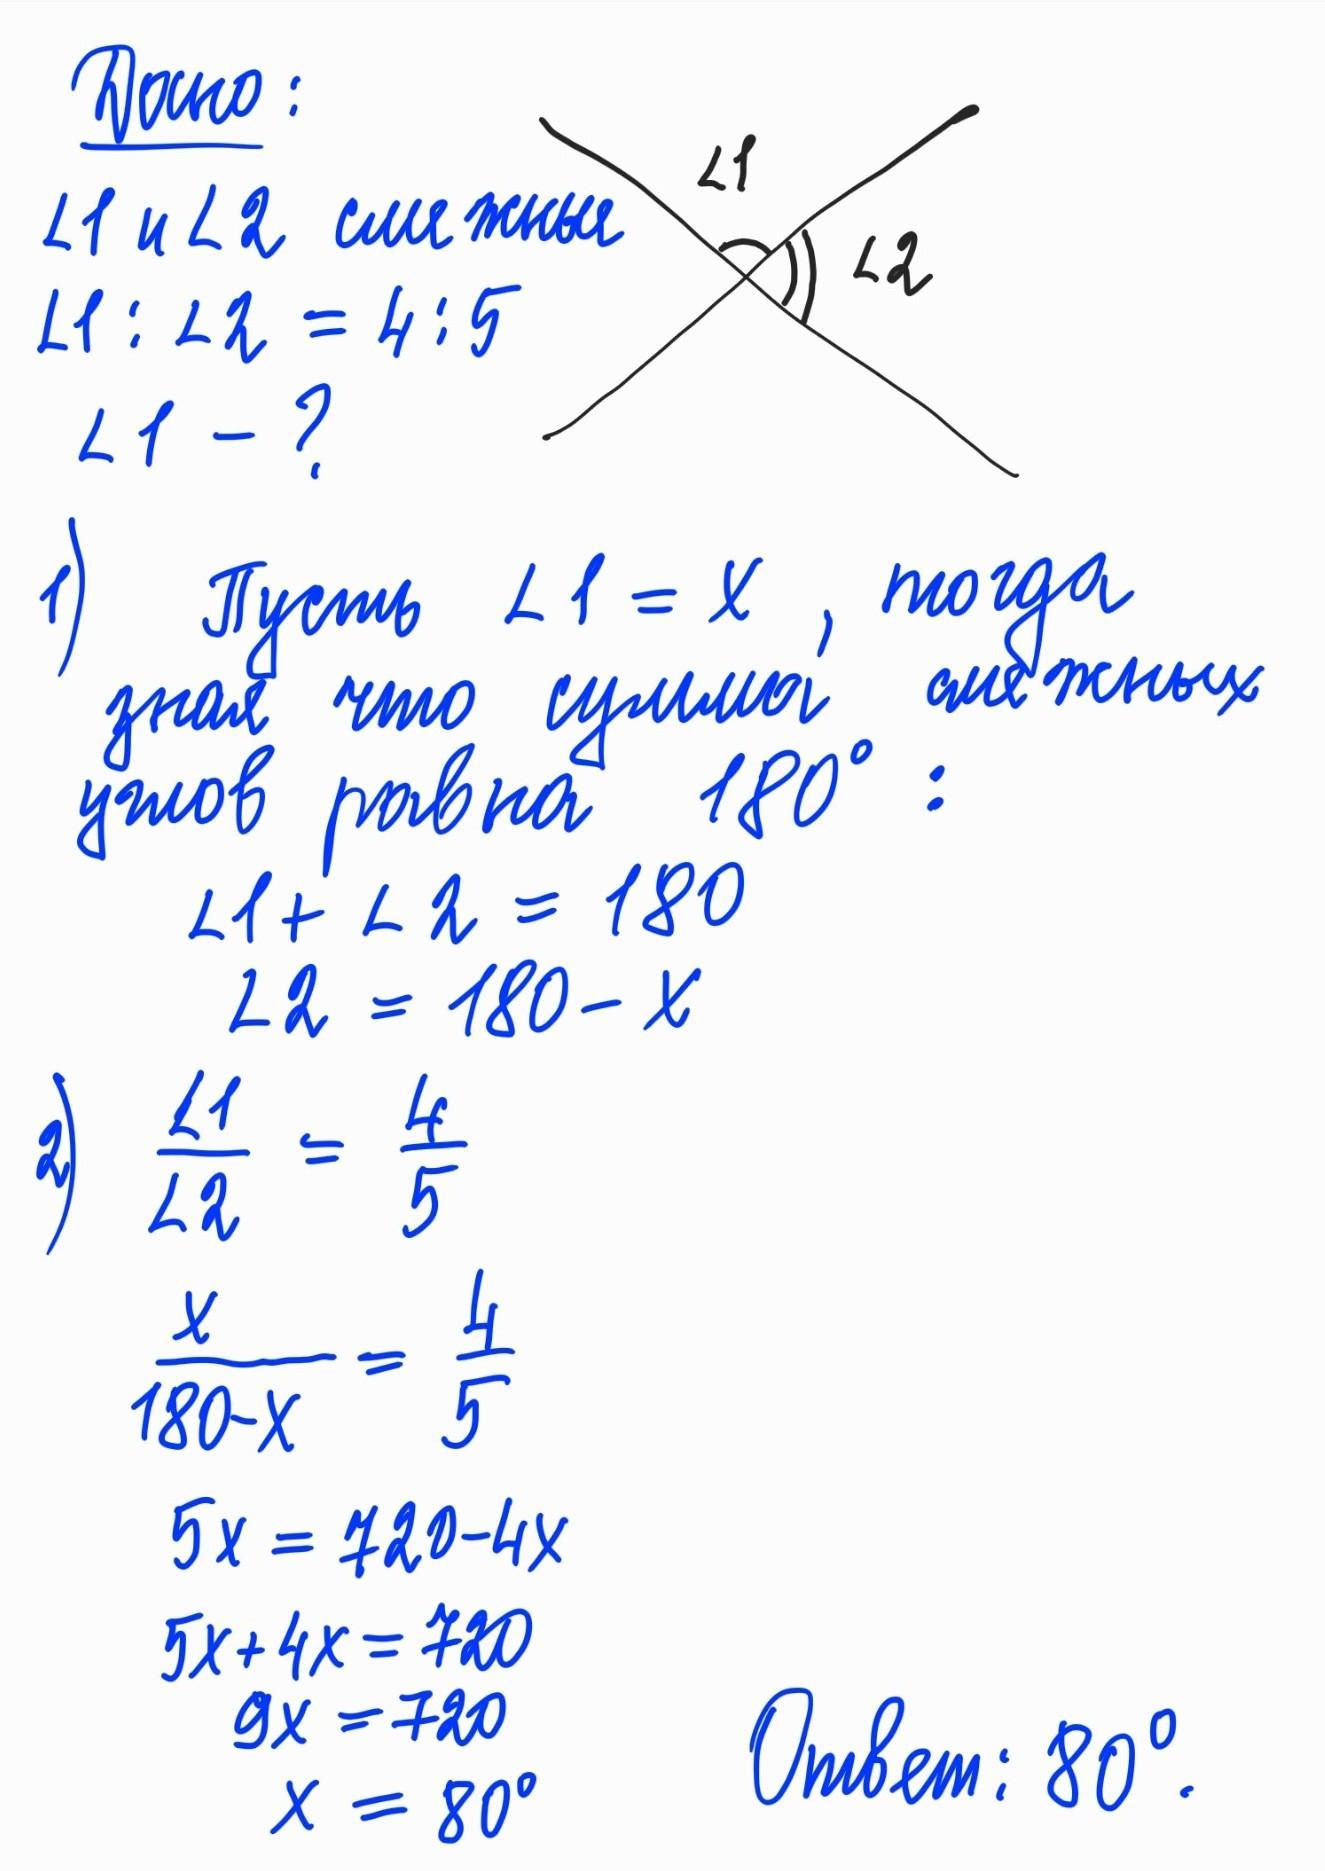 Дано:
∠1 и ∠2 смежные
∠1 : ∠2 = 4 : 5
∠1 - ?
∠1
∠2
1) Пусть ∠1 = x , тогда
зная что сумма смежных
углов равна 180° :
∠1 + ∠2 = 180
∠2 = 180 - x
2) ∠1/∠2 = 4/5
x/(180-x) = 4/5
5x = 720-4x
5x+4x = 720
9x = 720
x = 80°
Ответ: 80°.